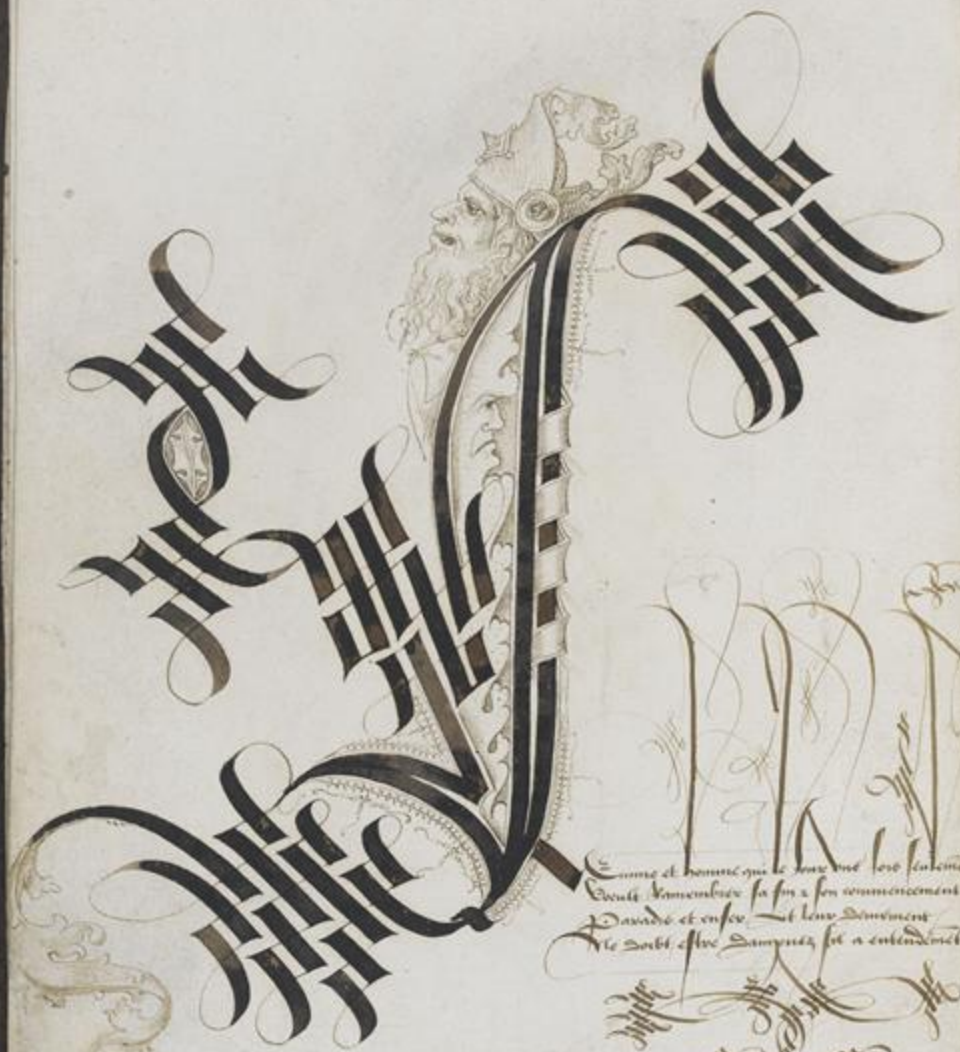 et homme qui le jour une fois seulem
Voeult Ramembrer sa fin ⁊ son commencement
Paradis et enfer Et leur
Ne doibt estre dampnez sil a entendemet